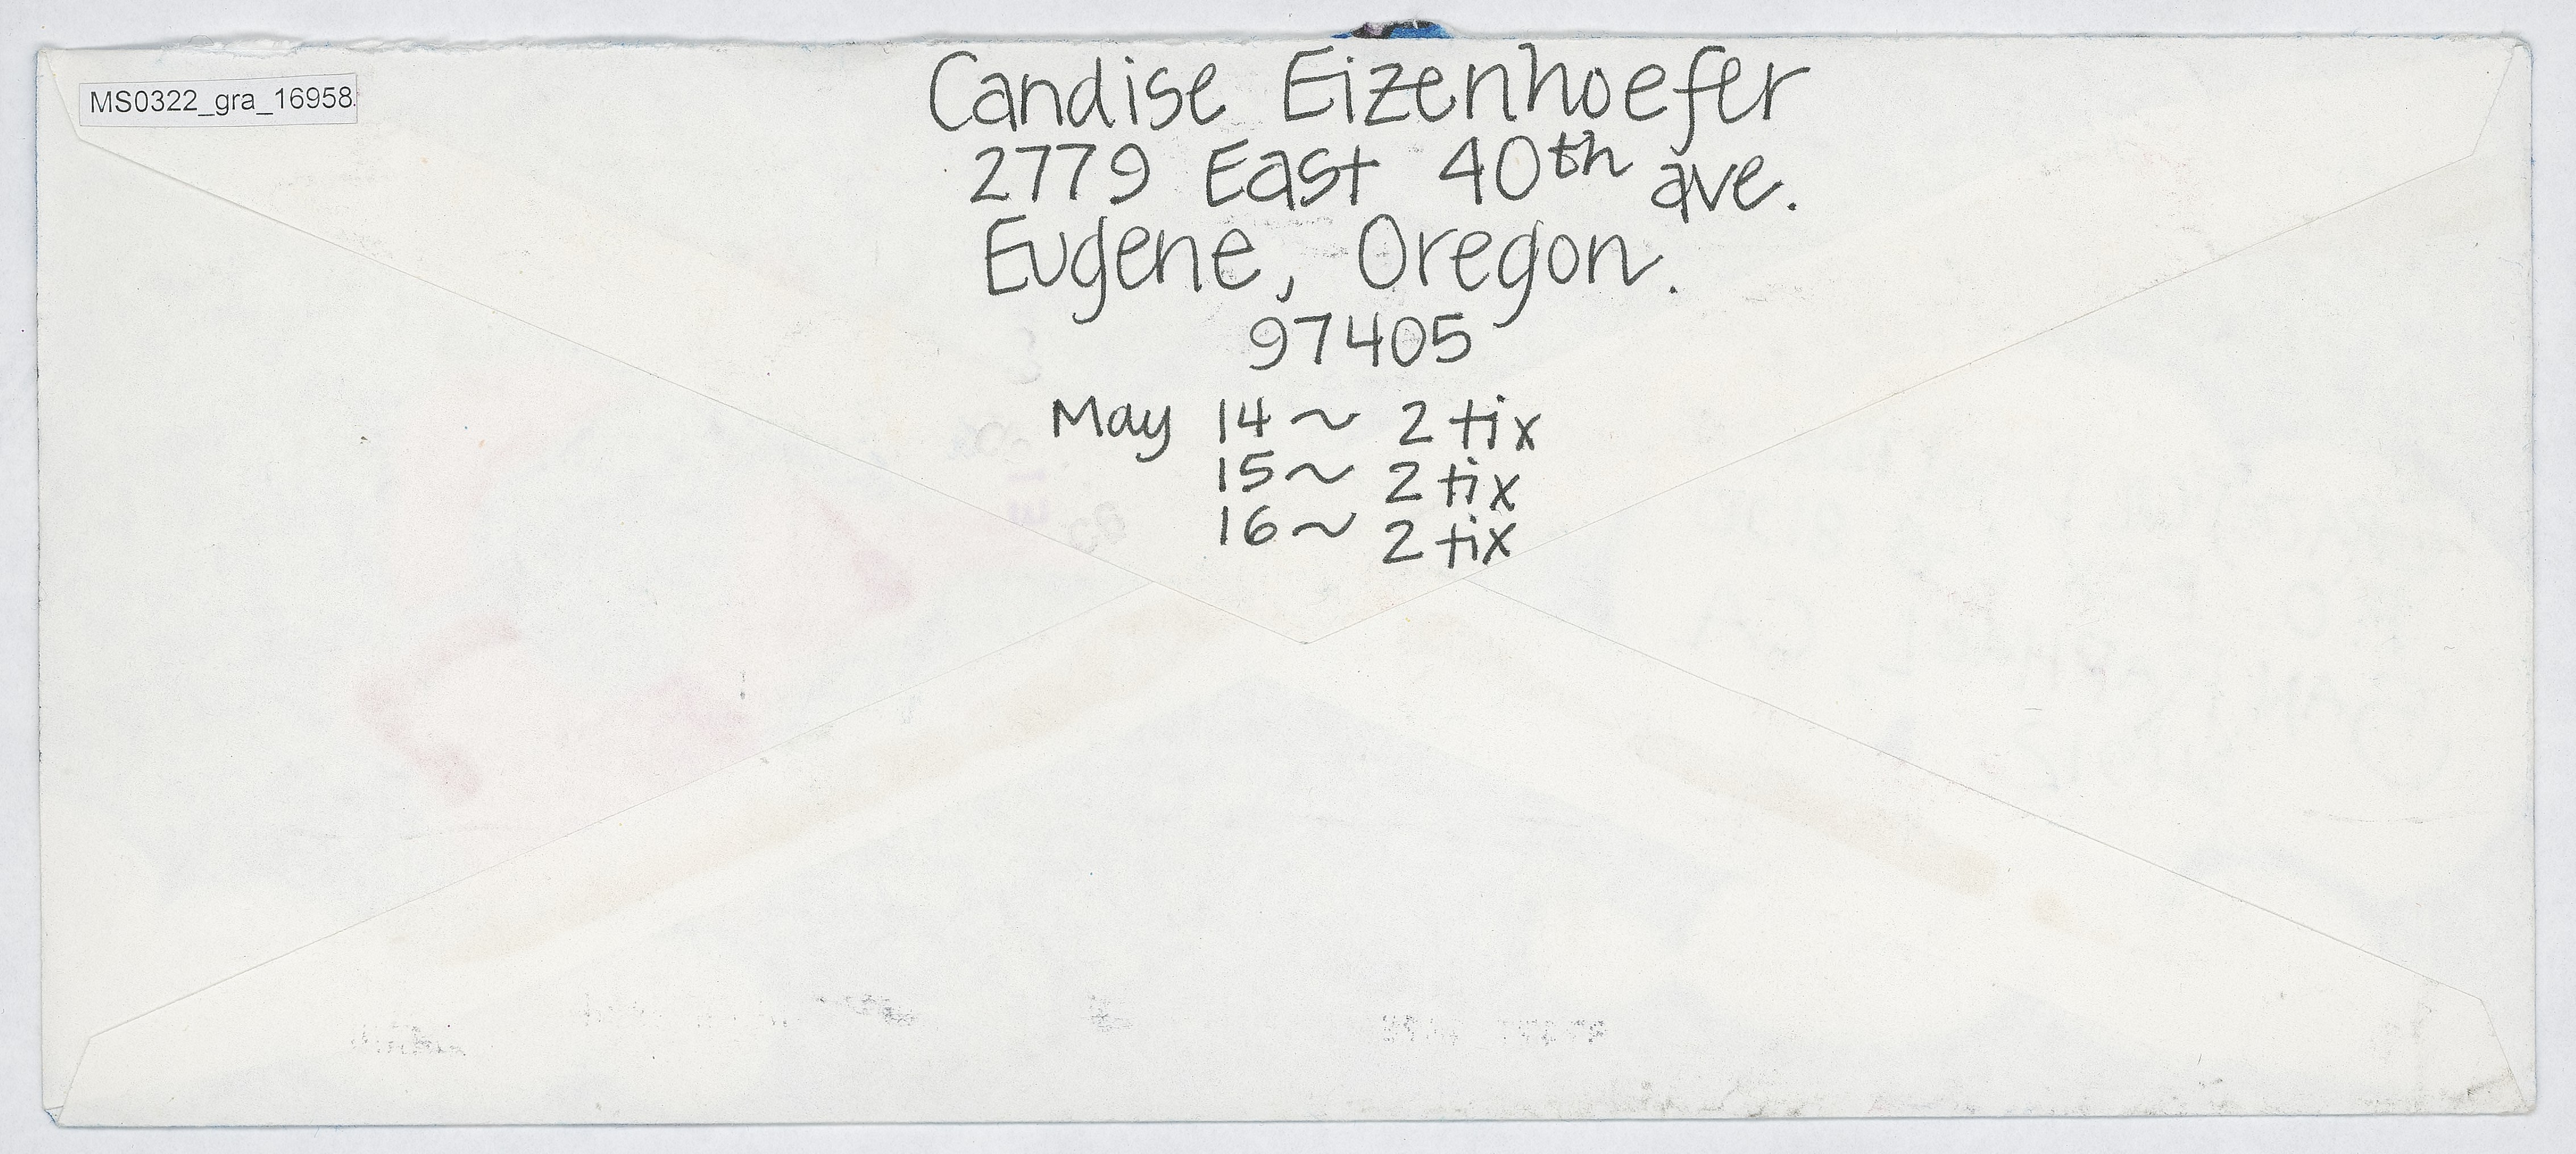 MS0322_gra_16958
Candise Eizenhoefer
2779 East 40th ave.
Eugene, Oregon.
97405
May 14 ~ 2 tix
15 ~ 2 tix
16 ~ 2 tix